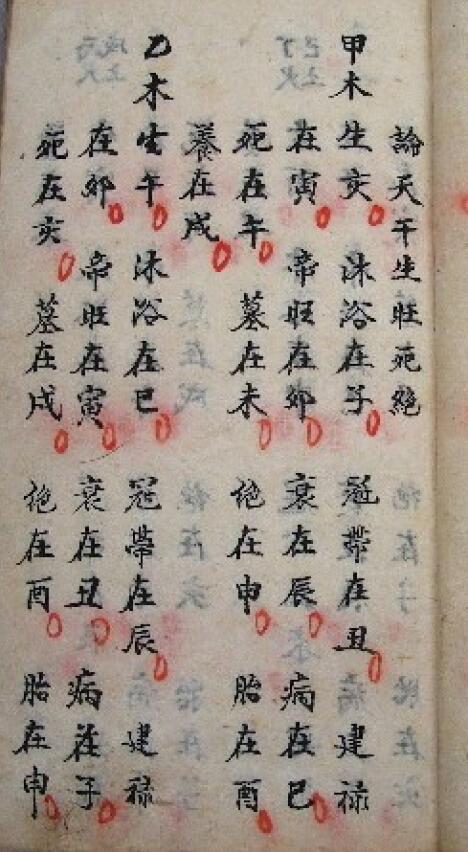 論天干生旺死絕
甲木生亥 沐浴在子 冠帶在丑 建祿
在寅 帝旺在卯 衰在辰 病在巳
死在午 墓在未 絶在申 胎在酉
養在戌
乙木生午 沐浴在巳 冠帶在辰 建祿
在卯 帝旺在寅 衰在丑 病在子
死在亥 墓在戌 絶在酉 胎在申